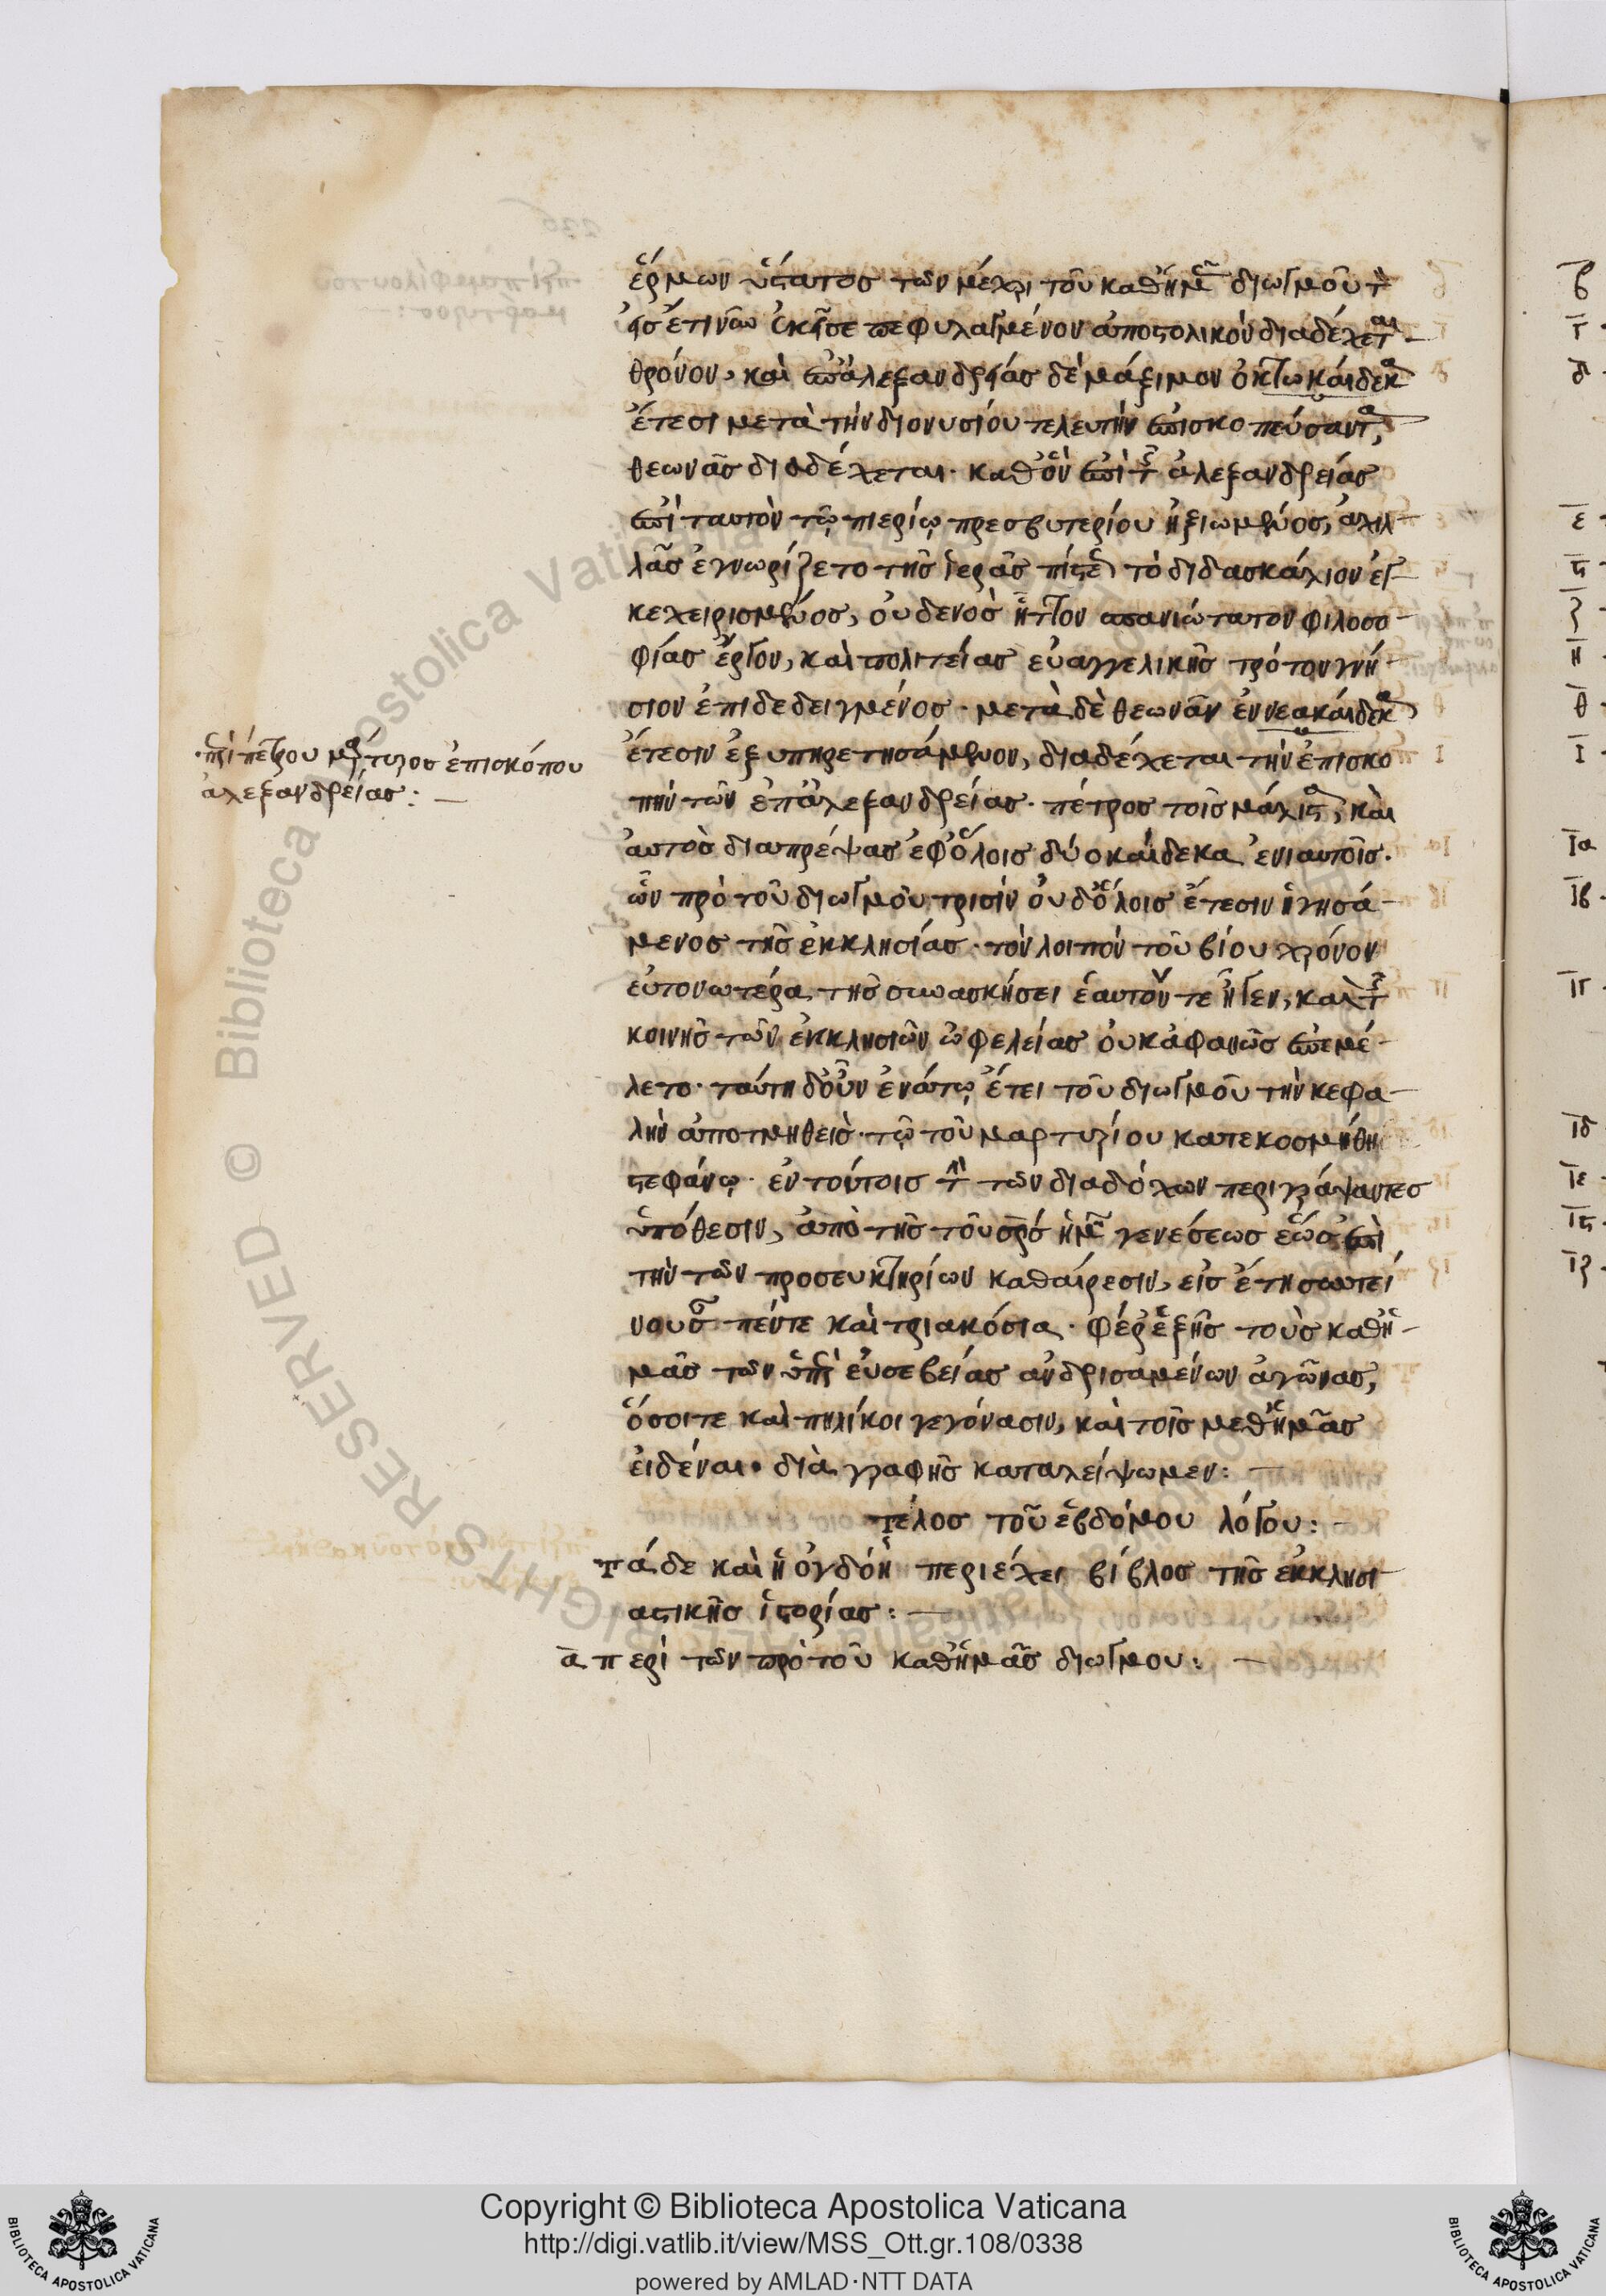 ἕρμων ὕστατος τῶν μέχρι τοῦ καθ' ἡμᾶς διωγμοῦ τὸν
εἰς ἔτι νῦν ἐκεῖσε πεφυλαγμένον ἀποστολικὸν διαδέχεται
θρόνον, καὶ ἐπ' ἀλεξανδρείας δὲ μάξιμον ὀκτωκαίδεκα
ἔτεσι μετὰ τὴν διονυσίου τελευτὴν ἐπισκοπεύσαντα,
θεωνᾶς διαδέχεται· καθ' ὃν ἐπὶ τῆς ἀλεξανδρείας
ἐπὶ ταυτὸν τῷ πιερίῳ πρεσβυτερίου ἠξιωμένος, ἀχιλ-
λᾶς ἐγνωρίζετο τῆς ἱερᾶς πίστεως τὸ διδασκάλιον ἐγ-
κεχειρισμένος, οὐδενὸς ἧττον σπανιώτατον φιλοσο-
φίας ἔργον, καὶ πολιτείας εὐαγγελικῆς τρόπον γνή-
σιον ἐπιδεδειγμένος· μετὰ δὲ θεωνᾶν ἐννεακαίδεκα
ἔτεσιν ἐξυπηρετησάμενον, διαδέχεται τὴν ἐπισκο
πὴν τῶν ἐπ' ἀλεξανδρείας· πέτρος τοῖς μάλιστα, καὶ
αὐτὸς διαπρέψας ἐφ' ὅλοις δυοκαίδεκα ἐνιαυτοῖς·
ὧν πρὸ τοῦ διωγμοῦ τρισὶν οὐδ' ὅλοις ἔτεσιν ἡγησά-
μενος τῆς ἐκκλησίας· τὸν λοιπὸν τοῦ βίου χρόνον
εὐτονωτέρα τῆς συνασκήσει ἑαυτόν τε ἦγεν, καὶ τῆς
κοινῆς τῶν ἐκκλησιῶν ὠφελείας οὐκ ἀφανῶς ἐπεμέ-
λετο· ταύτη δ' οὖν ἐνάτῳ ἔτει τοῦ διωγμοῦ τὴν κεφα-
λὴν ἀποτμηθεὶς· τῷ τοῦ μαρτυρίου κατεκοσμήθη
στεφάνῳ· ἐν τούτοις τὴν τῶν διαδόχων περιγράψαντες
ὑπόθεσιν, ἀπὸ τῆς τοῦ σρσ ἡμῶν γενέσεως ἕως ἐπὶ
τὴν τῶν προσευκτηρίων καθαίρεσιν, εἰς ἔτη συντεί
νουσαν πέντε καὶ τριακόσια· φέρ' ἑξῆς τοὺς καθ' ἡ-
μᾶς τῶν ὑπὲρ εὐσεβείας ἀνδρισαμένων ἀγῶνας,
ὅσοι τε καὶ πηλίκοι γεγόνασιν, καὶ τοῖς μεθ' ἡμᾶς
εἰδέναι· διὰ γραφῆς καταλείψωμεν: —
τέλος τοῦ ἑβδόμου λόγου: —
Τάδε καὶ ἡ ὀγδόη περιέχει βίβλος τῆς ἐκκλησι
αστικῆς ἱστορίας: —
α περὶ τῶν πρὸ τοῦ καθ' ἡμᾶς διωγμου: —
·περὶ πέτρου μάρτυρος ἐπισκόπου
ἀλεξανδρείας: —
β
γ
δ
ε
ς
ζ
η
θ
ι
ια
ιβ
ιγ
ιδ
ιε
ις
ιζ
Biblioteca Apostolica Vaticana
© RIGHTS RESERVED
Copyright © Biblioteca Apostolica Vaticana
http://digi.vatlib.it/view/MSS_Ott.gr.108/0338
powered by AMLAD·NTT DATA
BIBLIOTECA APOSTOLICA VATICANA
BIBLIOTECA APOSTOLICA VATICANA